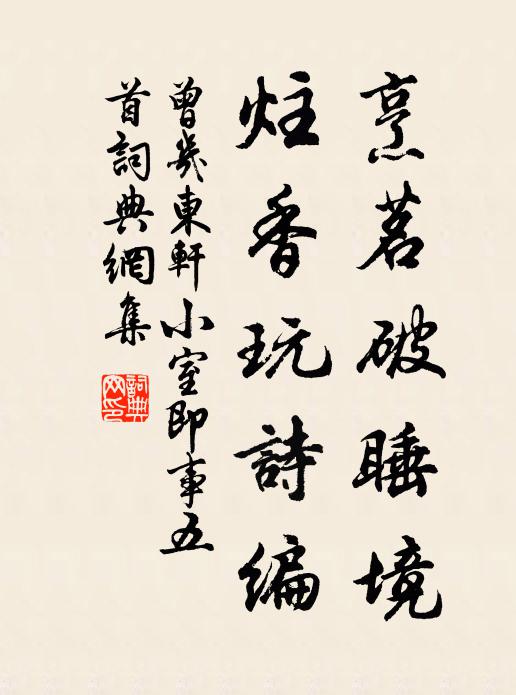 烹茗破睡境
炷香玩詩编
曾幾東軒小室即事五
首詞典網集
詞典网印